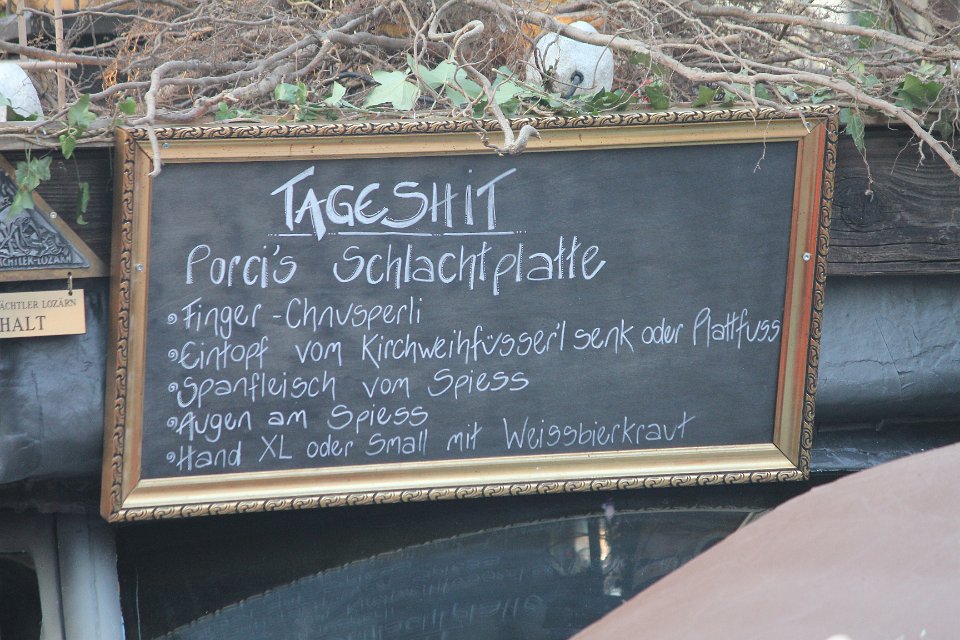 TAGESHIT
Porci's Schlachtplatte
Finger-Chnusperli
Eintopf vom Kirchweihfüsser'l senk oder Plattfuss
Spanfleisch vom Spiess
Augen am Spiess
Hand XL oder Small mit Weissbierkraut
ÄCHTLER-LOZÄRN
ÄCHTLER LOZÄRN
HALT